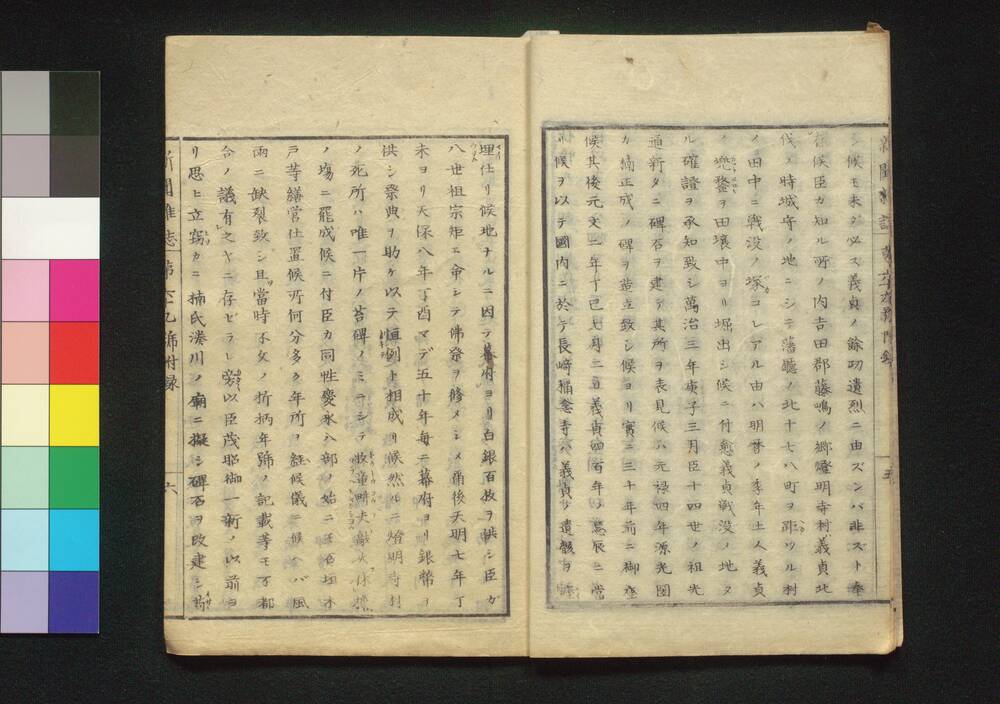 シ候モ未ダ必ス義貞ノ餘功遺烈ニ由ズンバ非ズト奉
候臣カ知ル所ノ内吉田郡藤嶋ノ郷燈明寺村ハ義貞北
伐ノ時城守ノ地ニシテ藩廳ノ北十七八町ヲ距ツル村
ノ田中ニ戰没ノ塚コレアル由ハ明暦ノ季年土人義貞
ノ兜鍪ヲ田壌中ヨリ堀出シ候ニ付愈義貞戰没ノ地タ
ル確證ヲ承知致シ萬治三年庚子三月臣十四世ノ祖光
通新タニ碑石ヲ建テ其所ヲ表見候ハ元禄四年源光圀
カ楠正成ノ碑ヲ造立致シ候ヨリ實ニ三十年前ニ御座
候其後元文二年丁巳七月二日義貞四百年ノ忌辰ニ當
リ候ヲ以テ國内ニ於テ長崎稱念寺ハ義貞ノ遺骸ヲ
埋仕リ候地ナルニ因テ幕府ヨリ白銀百枚ヲ供シ臣カ
八世祖宗矩ニ命シテ佛祭ヲ修メシメ爾後天明七年丁
未ヨリ天保八年丁酉マデ五十年毎ニ幕府ヨリ銀幣ヲ
供シ祭典ヲ助ケ以テ恒例ト相成リ候然ルニ燈明寺村
ノ死所ハ唯一片ノ苔碑ノミニシテ牧童
ノ塲ニ罷成候ニ付臣カ同姓慶永
戸等繕營仕置候所何分多クノ年所ヲ經候儀ニ候ヘバ風
雨ニ缺裂致シ且當時不文ノ折柄年號ノ記載等モ不都
合ノ議有之ヤニ存ゼラレ旁以臣茂昭御一新ノ以前ヨ
リ思ヒ立竊カニ楠氏湊川ノ廟ニ擬シ碑石ヲ改建シ
新聞雜志 第六十九號附録 六